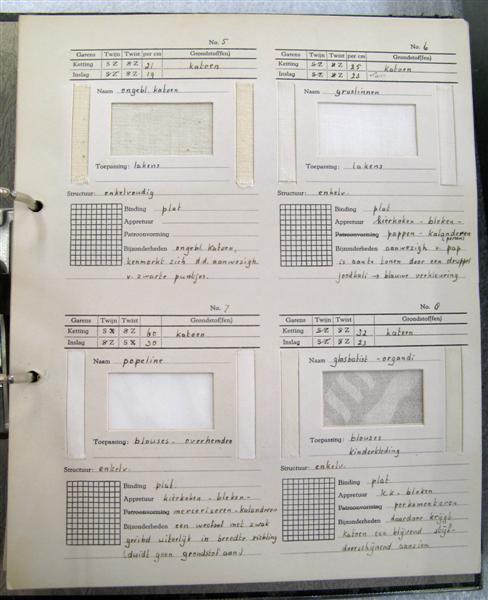 No. 5
Garens Twijn Twist per cm Grondstof(fen)
Ketting S Z S Z 21 katoen
Inslag S Z S Z 19
Naam ongebl. katoen
Toepassing: lakens
Structuur: enkelvoudig
Binding plat
Appretuur
Patroonvorming
Bijzonderheden ongebl. katoen,
kenmerkt zich d.d. aanwezigh.
v. zwarte puntjes.
No. 6
Garens Twijn Twist per cm Grondstof(fen)
Ketting S Z S Z 25 katoen
Inslag S Z S Z 23
Naam graslinnen
Toepassing: lakens
Structuur: enkelv.
Binding plat
Appretuur kierkoken - bleken -
Patroonvorming pappen - kalanderen
(persen)
Bijzonderheden aanwezigh. v. pap
is aan te tonen door een druppel
joodkali → blauwe verkleuring
No. 7
Garens Twijn Twist per cm Grondstof(fen)
Ketting S Z S Z 60 katoen
Inslag S Z S Z 30
Naam popeline
Toepassing: blouses - overhemden
Structuur: enkelv.
Binding plat
Appretuur kierkoken - bleken -
Patroonvorming merceriseren - kalanderen
Bijzonderheden een weefsel met zwak
geribd uiterlijk in breedte richting
(duidt geen grondstof aan)
No. 8
Garens Twijn Twist per cm Grondstof(fen)
Ketting S Z S Z 32 katoen
Inslag S Z S Z 23
Naam glasbatist - organdi
Toepassing: blouses
kinderkleding
Structuur: enkelv.
Binding plat
Appretuur k.k. - bleken
Patroonvorming perkamenteren
Bijzonderheden daardoor krijgt
katoen een blijvend stijf-
doorschijnend aanzien